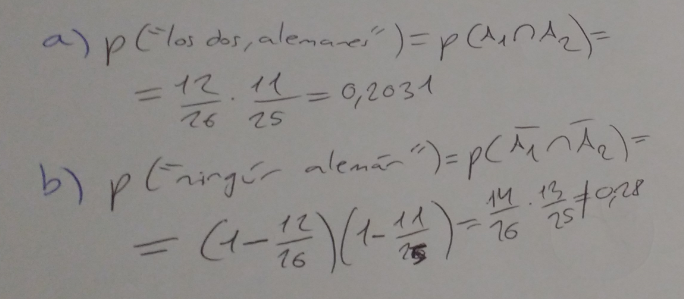 a) p("los dos, alemanes") = p(A₁∩A₂) =
= 12/26 · 11/25 = 0,2031
b) p("ningún alemán") = p(A̅₁ ∩ A̅₂) =
= (1 - 12/26)(1 - 11/25) = 14/26 · 13/25 = 0,28